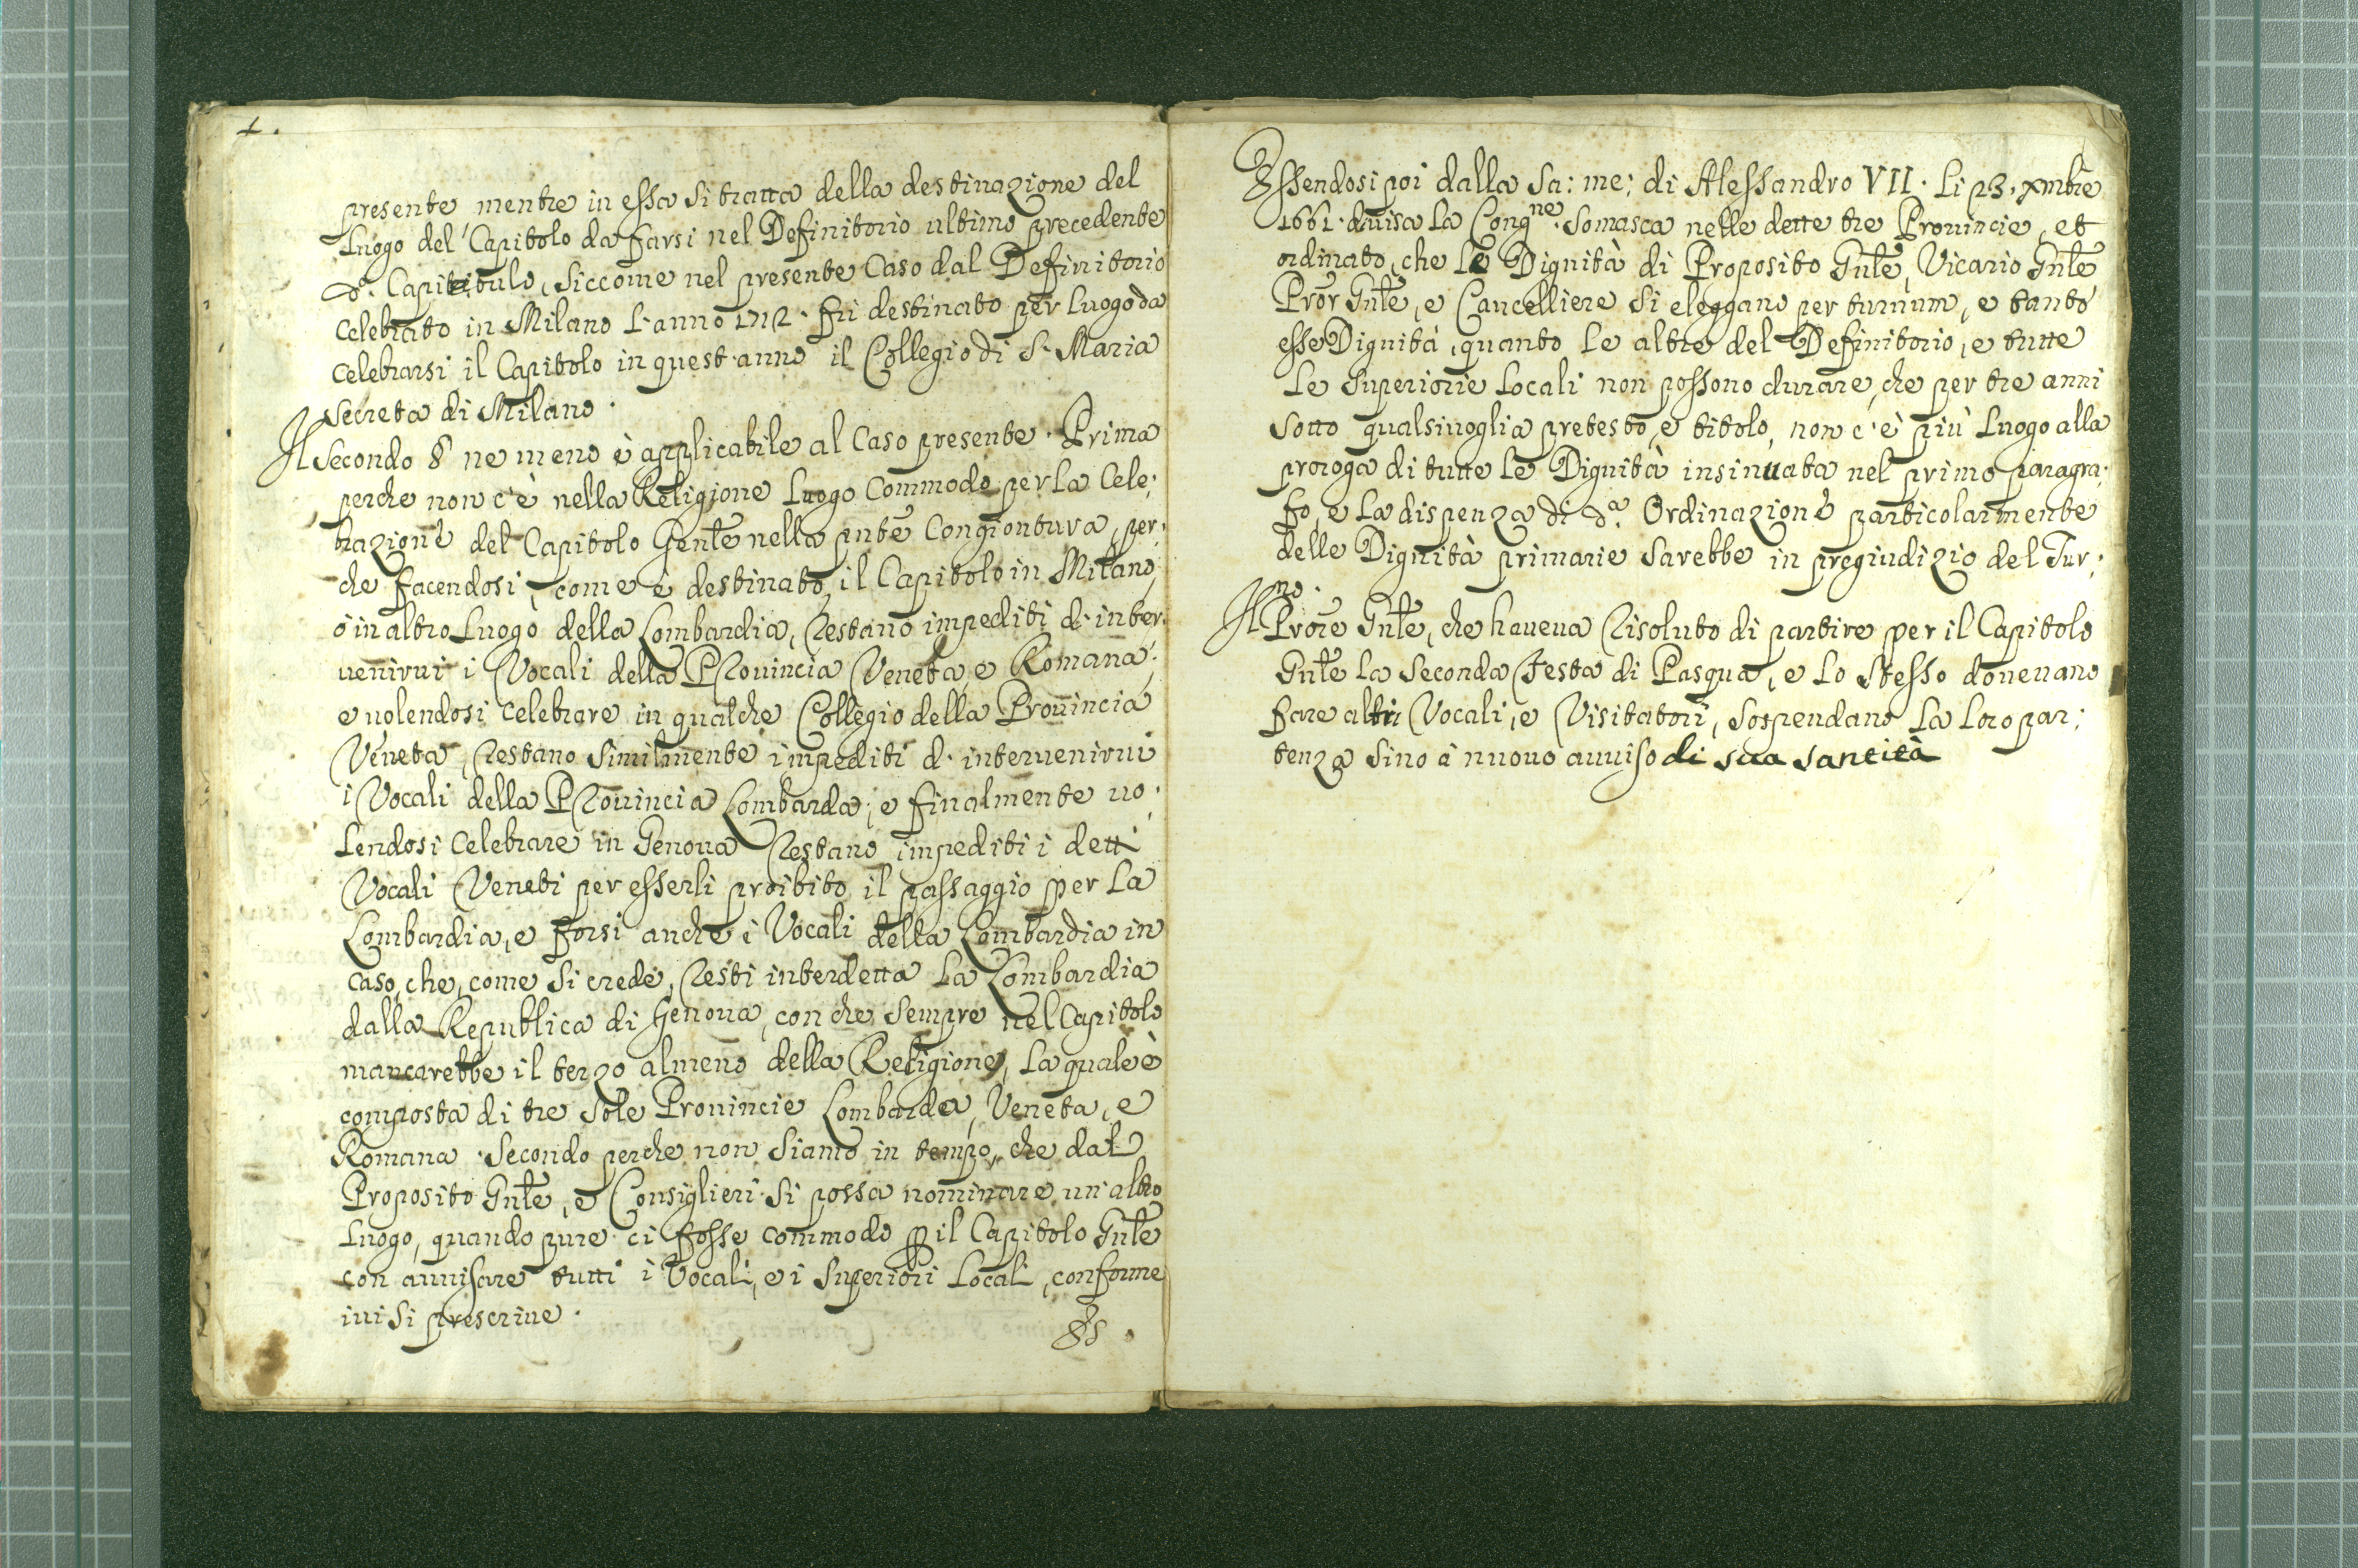 presente, mentre in essa si tratta della destinazione del
Luogo del Capitolo da farsi nel Definitorio ultimo precedente
do. Capitolo, siccome nel presente Caso dal Definitorio
celebrato in Milano l'anno 1712. fu destinato per Luogo da
celebrarsi il Capitolo in quest'anno il Collegio di S. Maria
secreta di Milano.
Il secondo § ne meno è applicabile al Caso presente. Prima
perche non c'è nella Religione Luogo Commodo per la Cele:
brazione del Capitolo Genle nella pnte Congiontura, per:
che facendosi, come è destinato, il Capitolo in Milano,
ò in altro Luogo della Lombardia, restano impediti d'inter:
uenirui i Vocali della Prouincia Veneta e Romana;
e uolendosi celebrare in qualche Collegio della Prouincia
Veneta, restano similmente impediti d'interuenirui
i Vocali della Prouincia Lombarda; e finalmente uo:
lendosi celebrare in Genoua restano impediti i detti
Vocali Veneti per esserli proibito il passaggio per la
Lombardia, e forsi anche i Vocali della Lombardia in
caso, che, come si crede, resti interdetta la Lombardia
dalla Republica di Genoua, con che sempre nel Capitolo
mancarebbe il terzo almeno della Religione, la quale è
composta di tre sole Prouincie Lombarda, Veneta, e
Romana. Secondo perche non siamo in tempo, che dal
Proposito Gnle, e Consiglieri si possa nominare un'altro
Luogo, quando pure ci fosse commodo p il Capitolo Gnle
con auuisare tutti i Vocali, e i Superiori Locali, conforme
iui si prescriue.
Essendosi poi dalla Sa: me: di Alessandro VII. li 23. xmbre
1661. diuisa la Congne. Somasca nelle dette tre Prouincie, et
ordinato, che le Dignità di Proposito Gnle, Vicario Gnle
Pror Gnle, e Cancelliere si eleggano per turnum, e tanto
esse Dignità, quanto le altre del Definitorio, e tutte
le Superiorie Locali non possono durare, che per tre anni
sotto qualsiuoglia pretesto, e titolo, non c'è più Luogo alla
proroga di tutte le Dignità insinuata nel primo paragra:
fo, e la dispenza di da. Ordinazione particolarmente
delle Dignità primarie sarebbe in pregiudizio del Tur:
no.
Il Prore Gnle, che haueua risoluto di partire per il Capitolo
Gnle la seconda Festa di Pasqua, e lo stesso doueuano
fare altri Vocali, e Visitatori, sospendano la loro par:
tenza sino à nuouo auuiso di sua santità